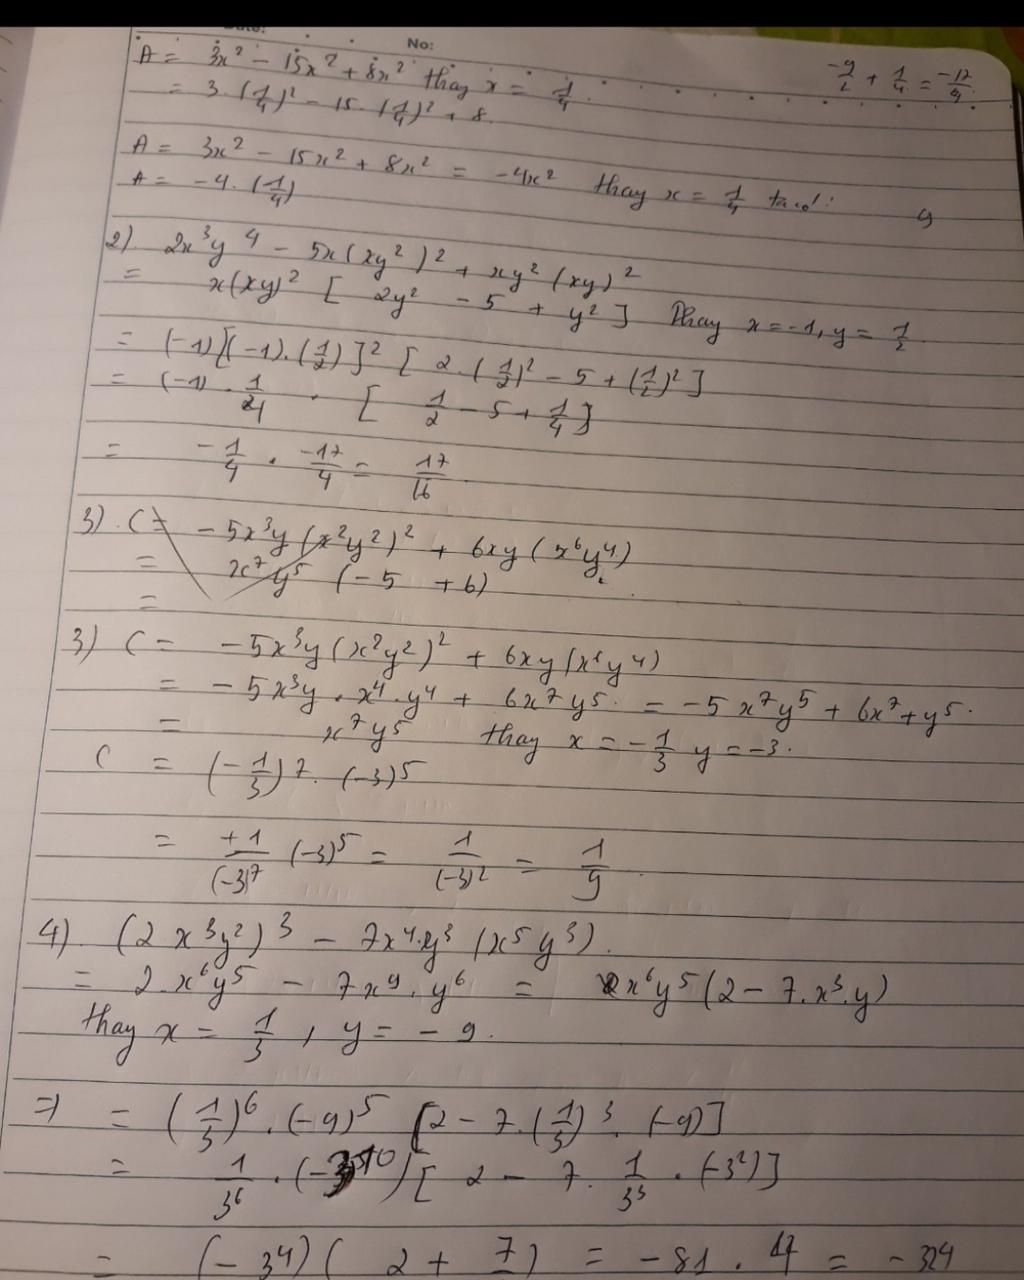 No:
A = 3x² - 15x² + 8x² thay x = 1/4.
-9/2 + 1/4 = -17/4
= 3.(1/4)² - 15.(1/4)² + 8
A = 3x² - 15x² + 8x² = -4x² thay x = 1/4
A = -4.(1/4)
2) 2x³y⁴ - 5x(xy²)² + xy²(xy)²
= x(xy)² [ 2y² - 5 + y² ] Thay x = -1, y = 1/2
= (-1)[(-1).(1/2)]² [ 2.(1/2)² - 5 + (1/2)² ]
= (-1) . 1/4 . [ 1/2 - 5 + 1/4 ]
= -1/4 . -17/4 = 17/16
3). C = -5x³y(x²y²)² + 6xy(x⁶y⁴)
= x⁷y⁵ (-5 + 6)
=
3) C = -5x³y(x²y²)² + 6xy(x⁶y⁴)
= -5x³y . x⁴.y⁴ + 6x⁷y⁵. = -5x⁷y⁵ + 6x⁷+y⁵.
= x⁷y⁵ thay x = -1/3 y = -3.
C = (-1/3)⁷. (-3)⁵
= +1/(-3)⁷ (-3)⁵ = 1/(-3)² = 1/9
4). (2x³y²)³ - 7x⁴.y³(x⁵y³).
= 2.x⁶y⁵ - 7x⁹.y⁶ = x⁶y⁵(2 - 7.x³.y)
thay x = 1/3, y = -9.
=> = (1/3)⁶.(-9)⁵ [2 - 7.(1/3)³.(-9)]
= 1/3⁶ . (-3¹⁰)[ 2 - 7. 1/3³ . (-3²)]
= (-3⁴)( 2 + 7 ) = -81 . = -324